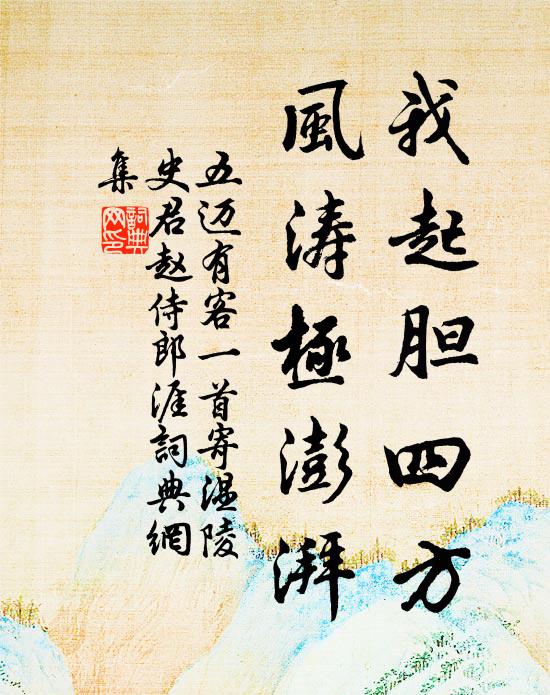 我起胆四方
風涛極澎湃
五迈有客一首寄温陵
史君赵侍郎涯詞典網
集
詞典網印